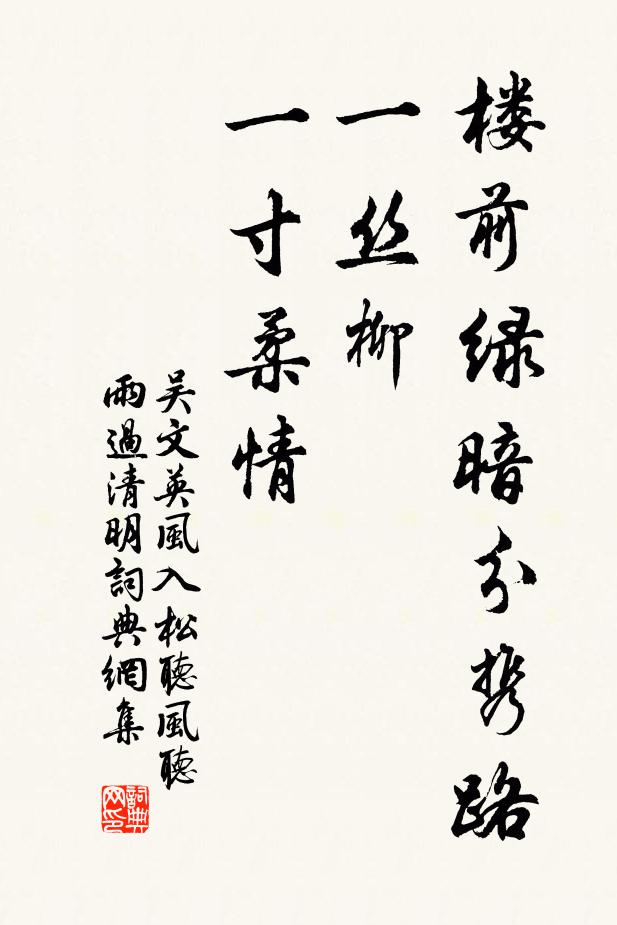 楼前绿暗分携路
一丝柳
一寸柔情
吴文英風入松聽風聽
雨過清明詞典網集
詞典
网印